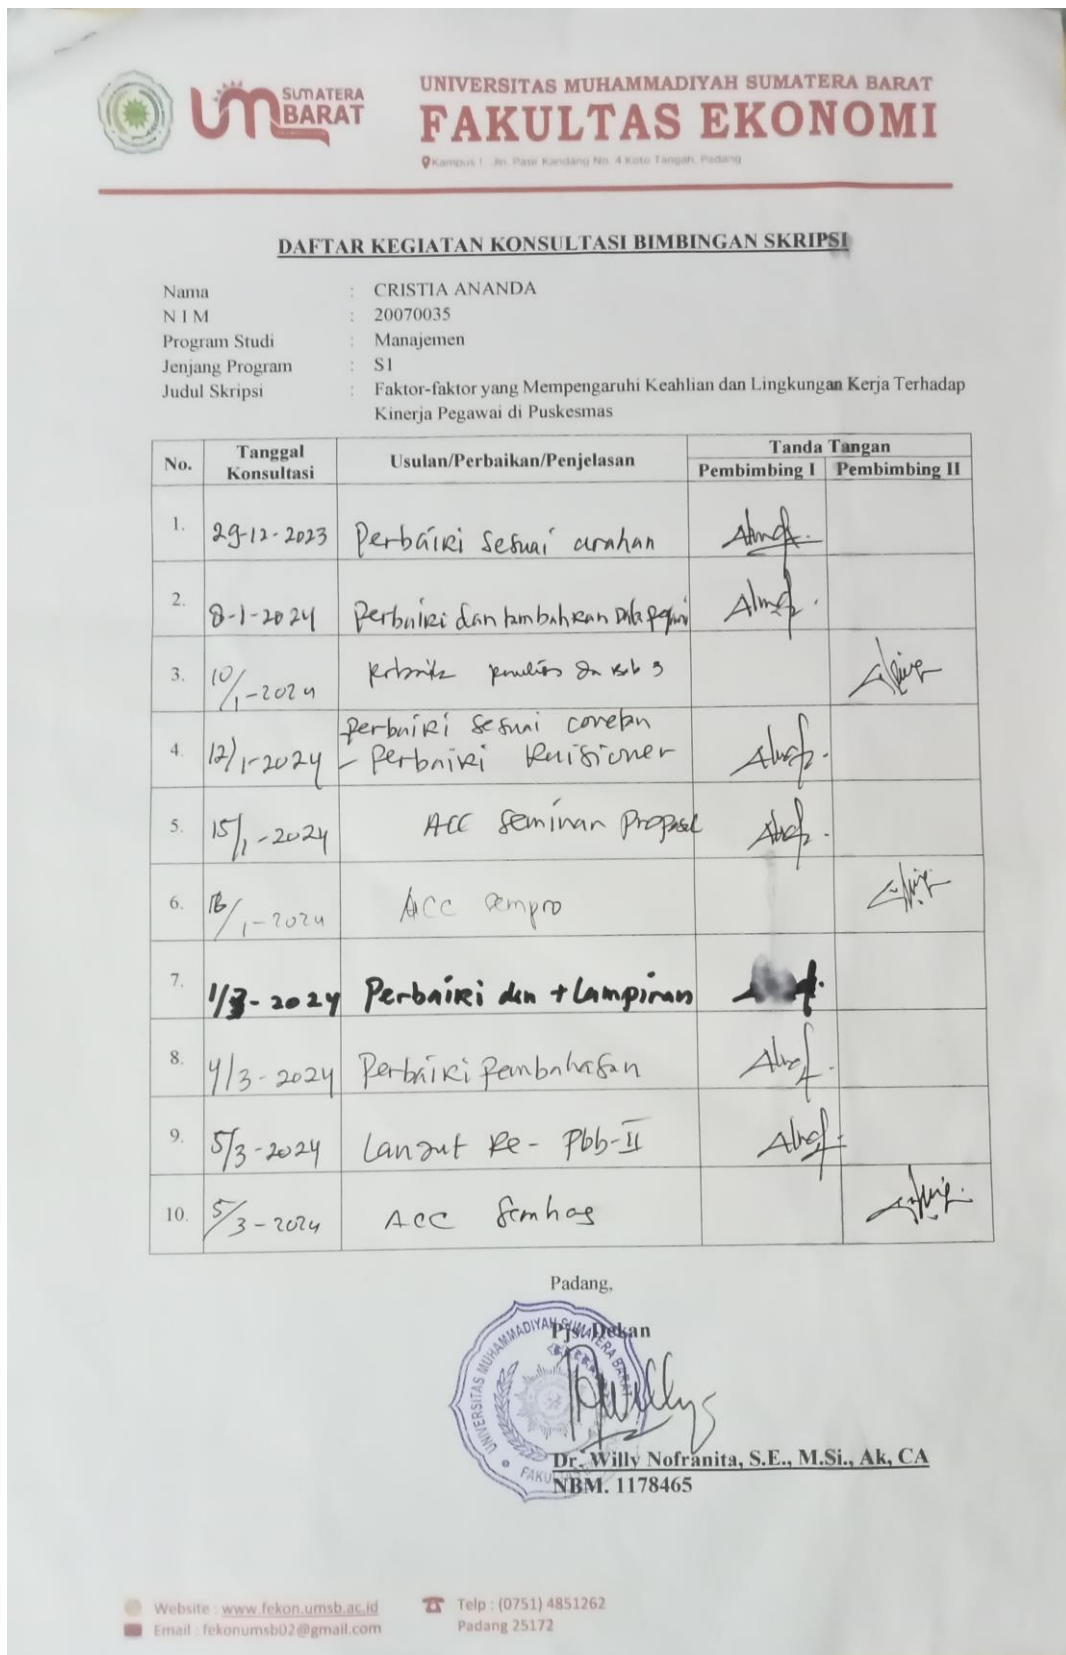 SUMATERA
UM BARAT
UNIVERSITAS MUHAMMADIYAH SUMATERA BARAT
FAKULTAS EKONOMI
Kampus 1 Jln. Pasir Kandang No. 4 Koto Tangah, Padang
DAFTAR KEGIATAN KONSULTASI BIMBINGAN SKRIPSI
Nama : CRISTIA ANANDA
N I M : 20070035
Program Studi : Manajemen
Jenjang Program : S1
Judul Skripsi : Faktor-faktor yang Mempengaruhi Keahlian dan Lingkungan Kerja Terhadap
Kinerja Pegawai di Puskesmas
No. Tanggal Konsultasi Usulan/Perbaikan/Penjelasan Tanda Tangan
Pembimbing I Pembimbing II
1. 29-12-2023 Perbaiki sesuai arahan
2. 8-1-2024 Perbaiki dan tambahkan Data
3. 10/1-2024 bab 3
4. 12/1-2024 perbaiki sesuai coretan
- Perbaiki Kuisioner
5. 15/1-2024 ACC Seminar Proposal
6. /1-2024 ACC Sempro
7. 1/3-2024 Perbaiki dan + Lampiran
8. 4/3-2024 Perbaiki Pembahasan
9. 5/3-2024 Lanjut ke - Pbb-II
10. 5/3-2024 ACC Semhas
Padang,
Pjs. Dekan
UNIVERSITAS MUHAMMADIYAH SUMATERA BARAT
Dr. Willy Nofranita, S.E., M.Si., Ak, CA
NBM. 1178465
Website : www.fekon.umsb.ac.id
Email : fekonumsb02@gmail.com
Telp : (0751) 4851262
Padang 25172